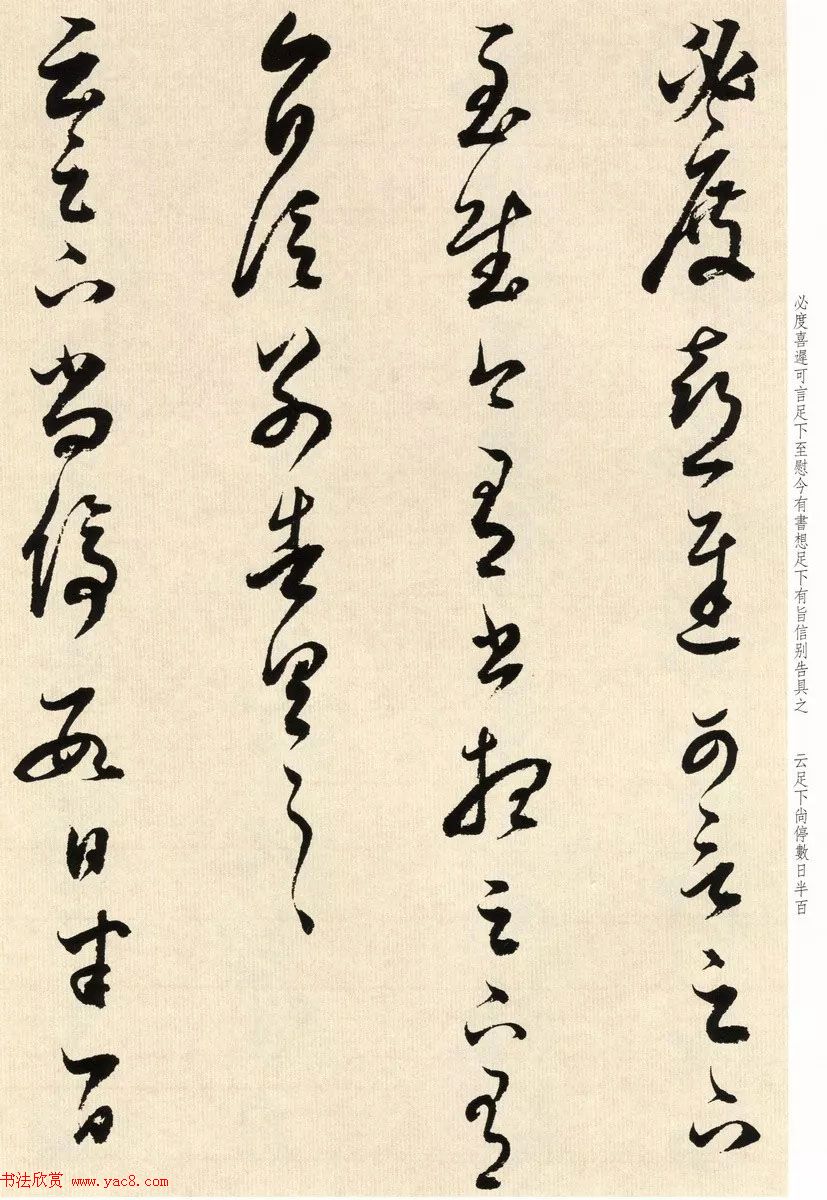 必度喜遲可言足下
至慰今有書想足下有
旨信别告具之
云足下尚停數日半百
必度喜遲可言足下至慰今有書想足下有旨信别告具之 云足下尚停數日半百
书法欣赏 www.yac8.com